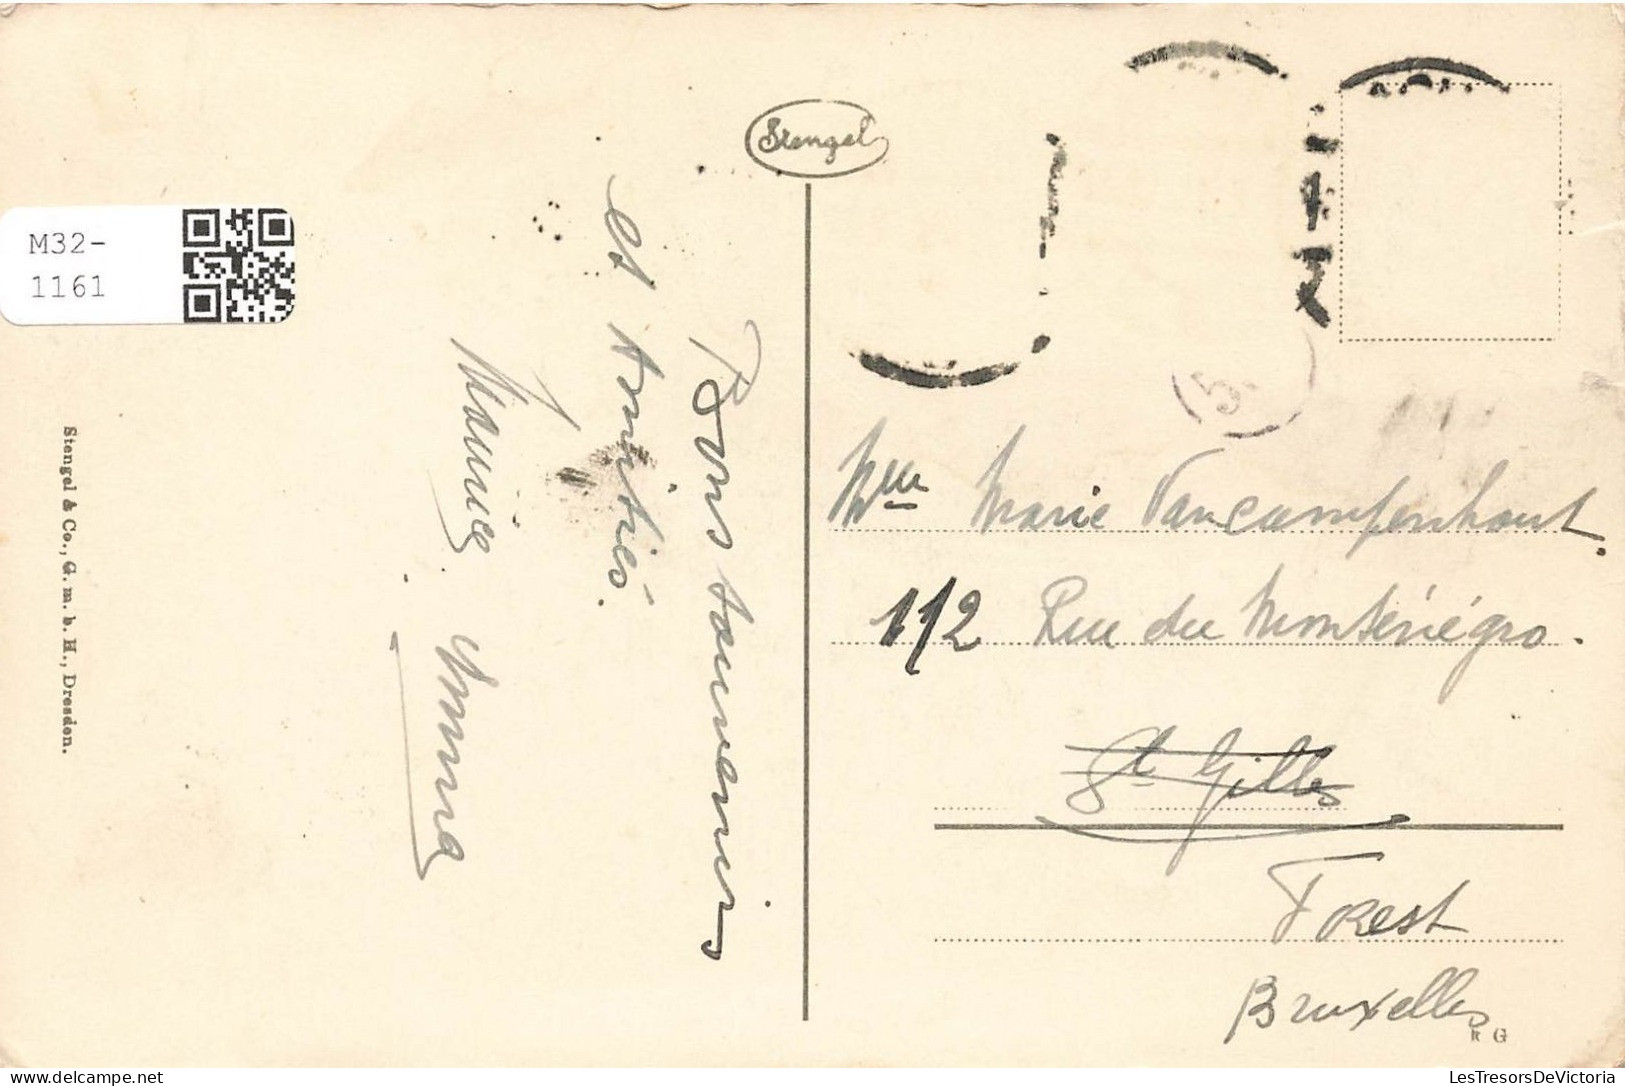 M32-
1161
Stengel
Bons souvenirs
et Amitiés.
Emma
Stengel & Co., G. m. b. H., Dresden.
5
Mlle Marie Vancampenhout.
112 Rue du Monténégro.
St Gilles
Forest
Bruxelles
R G
LesTresorsDeVictoria